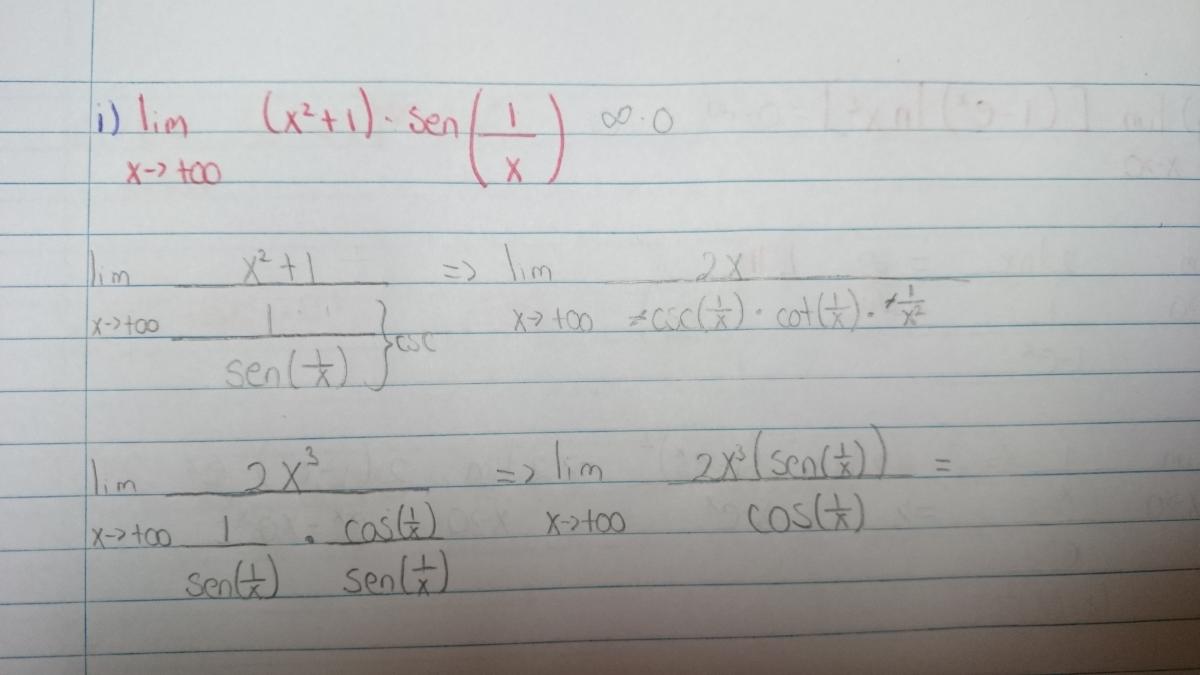 i) lim x→+∞ (x²+1) · sen(1/x) ∞·0
lim x→+∞ (x²+1)/(1/sen(1/x)) } csc => lim x→+∞ 2x/(-csc(1/x) · cot(1/x) · -1/x²)
lim x→+∞ 2x³/(1/sen(1/x) · cos(1/x)/sen(1/x)) => lim x→+∞ 2x³(sen(1/x))/cos(1/x) =